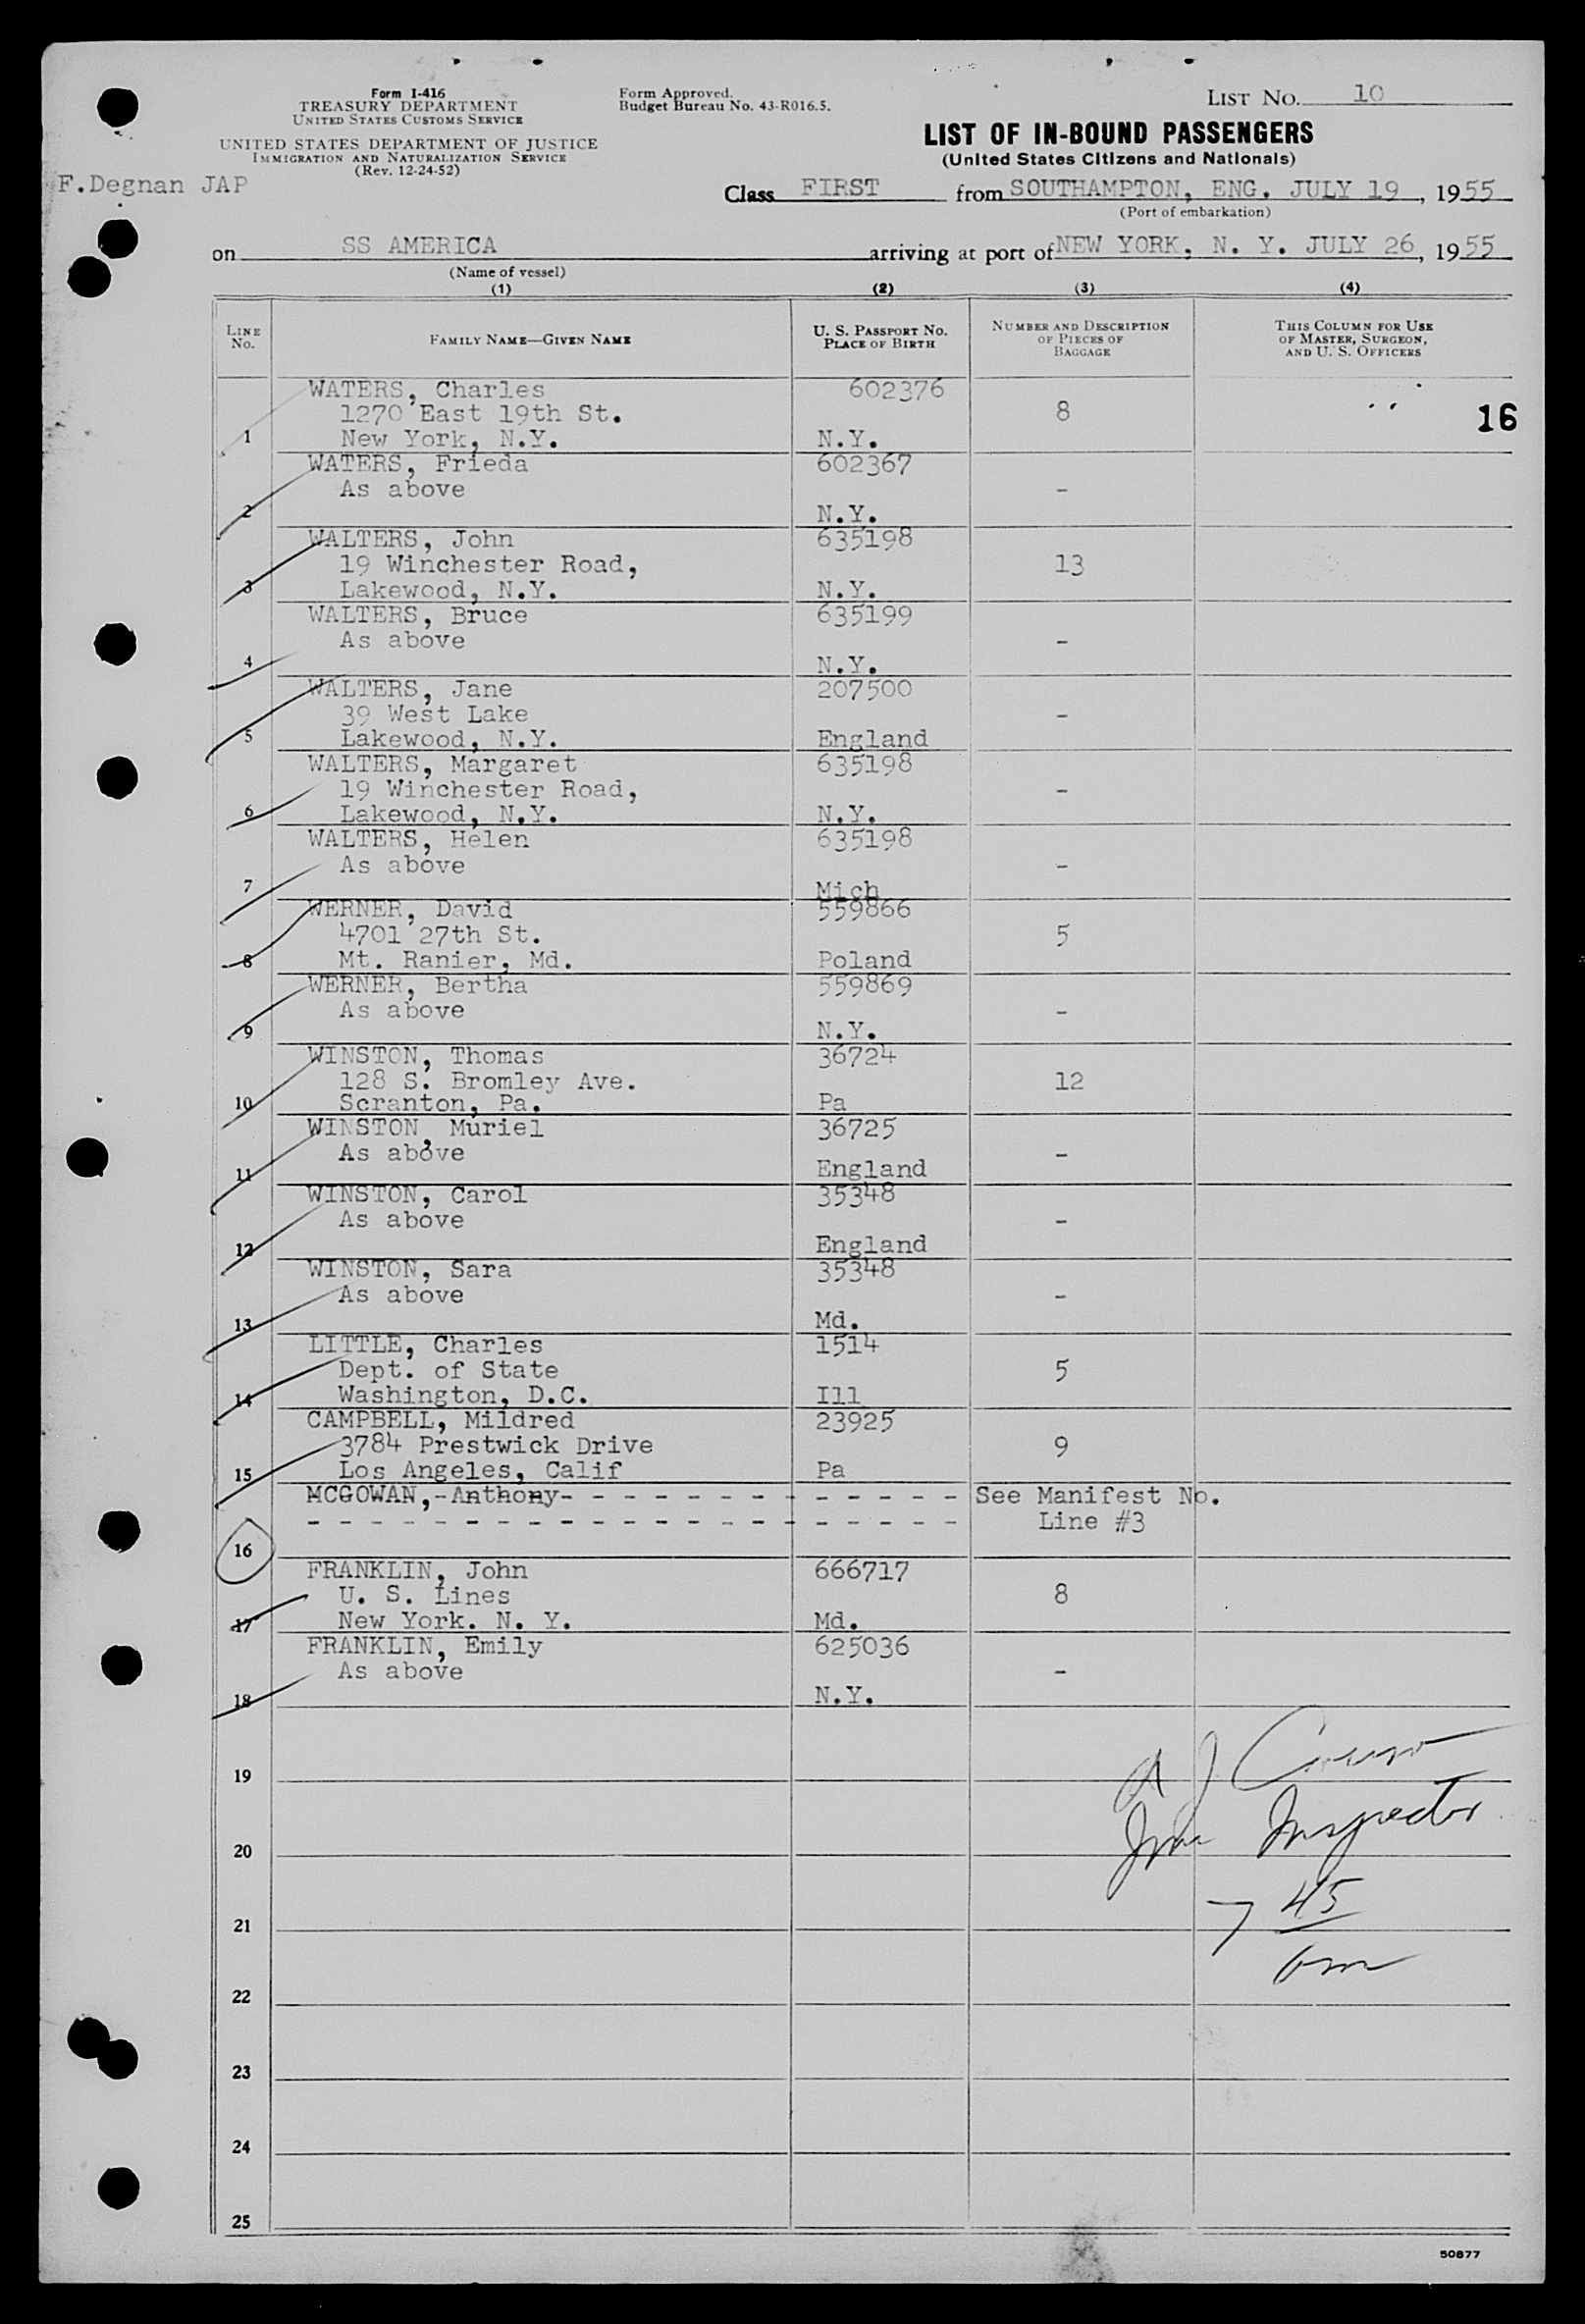 Form I-416
TREASURY DEPARTMENT
UNITED STATES CUSTOMS SERVICE
UNITED STATES DEPARTMENT OF JUSTICE
IMMIGRATION AND NATURALIZATION SERVICE
(Rev. 12-24-52)
Form Approved.
Budget Bureau No. 43-R016.5.
LIST NO. 10
LIST OF IN-BOUND PASSENGERS
(United States Citizens and Nationals)
F.Degnan JAP
Class FIRST from SOUTHAMPTON, ENG. JULY 19, 1955
(Port of embarkation)
on SS AMERICA arriving at port of NEW YORK, N. Y. JULY 26, 1955
(Name of vessel)
(1) (2) (3) (4)
LINE NO.
FAMILY NAME—GIVEN NAME
U. S. PASSPORT NO.
PLACE OF BIRTH
NUMBER AND DESCRIPTION
OF PIECES OF
BAGGAGE
THIS COLUMN FOR USE
OF MASTER, SURGEON,
AND U. S. OFFICERS
WATERS, Charles 602376
1270 East 19th St. 8 16
1 New York, N.Y. N.Y.
WATERS, Frieda 602367
As above -
2 N.Y.
WALTERS, John 635198
19 Winchester Road, 13
3 Lakewood, N.Y. N.Y.
WALTERS, Bruce 635199
As above -
4 N.Y.
WALTERS, Jane 207500
39 West Lake -
5 Lakewood, N.Y. England
WALTERS, Margaret 635198
19 Winchester Road, -
6 Lakewood, N.Y. N.Y.
WALTERS, Helen 635198
As above -
7 Mich
WERNER, David 559866
4701 27th St. 5
8 Mt. Ranier, Md. Poland
WERNER, Bertha 559869
As above -
9 N.Y.
WINSTON, Thomas 36724
128 S. Bromley Ave. 12
10 Scranton, Pa. Pa
WINSTON, Muriel 36725
As above -
11 England
WINSTON, Carol 35348
As above -
12 England
WINSTON, Sara 35348
As above -
13 Md.
LITTLE, Charles 1514
Dept. of State 5
14 Washington, D.C. Ill
CAMPBELL, Mildred 23925
3784 Prestwick Drive 9
15 Los Angeles, Calif Pa
MCGOWAN,-Anthony- - - - - - - - - - - - - See Manifest No.
- - - - - - - - - - - - - - - - - - - - - Line #3
16
FRANKLIN, John 666717
U. S. Lines 8
17 New York. N. Y. Md.
FRANKLIN, Emily 625036
As above -
18 N.Y.
19
Inspector
20
21 7 45
22
23
24
25
50877